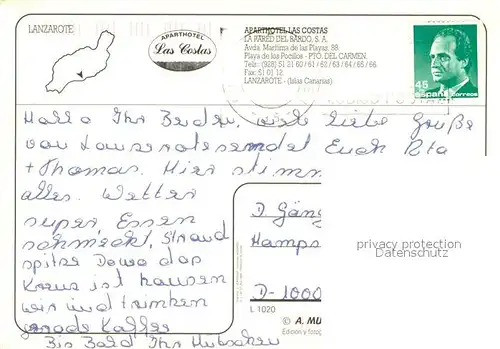 LANZAROTE
APARTHOTEL
Las Costas
APARTHOTEL LAS COSTAS
LA PARED DEL BARDO, S. A.
Avda. Maritima de las Playas, 88
Playa de los Pocillos - PTO. DEL CARMEN
Telfs.: (928) 51 21 60 / 61 / 62 / 63 / 64 / 65 / 66
Fax: 51 01 12
LANZAROTE - (Islas Canarias)
45
españa correos
Hallo Ihr Beiden, viele liebe Grüße
von Lanzarote sendet Euch Rita
+ Thomas. Hier stimm
alles. Wetter
super, Essen
schmeckt, Strand
spitze
Kreuz ist hausen
wir und trinken
gerade Kaffee
Bis Bald Ihr Hübschen
D. Gäng
Hamps
D-1000
L 1020
© A. MU
Edición y fotog
privacy protection
Datenschutz